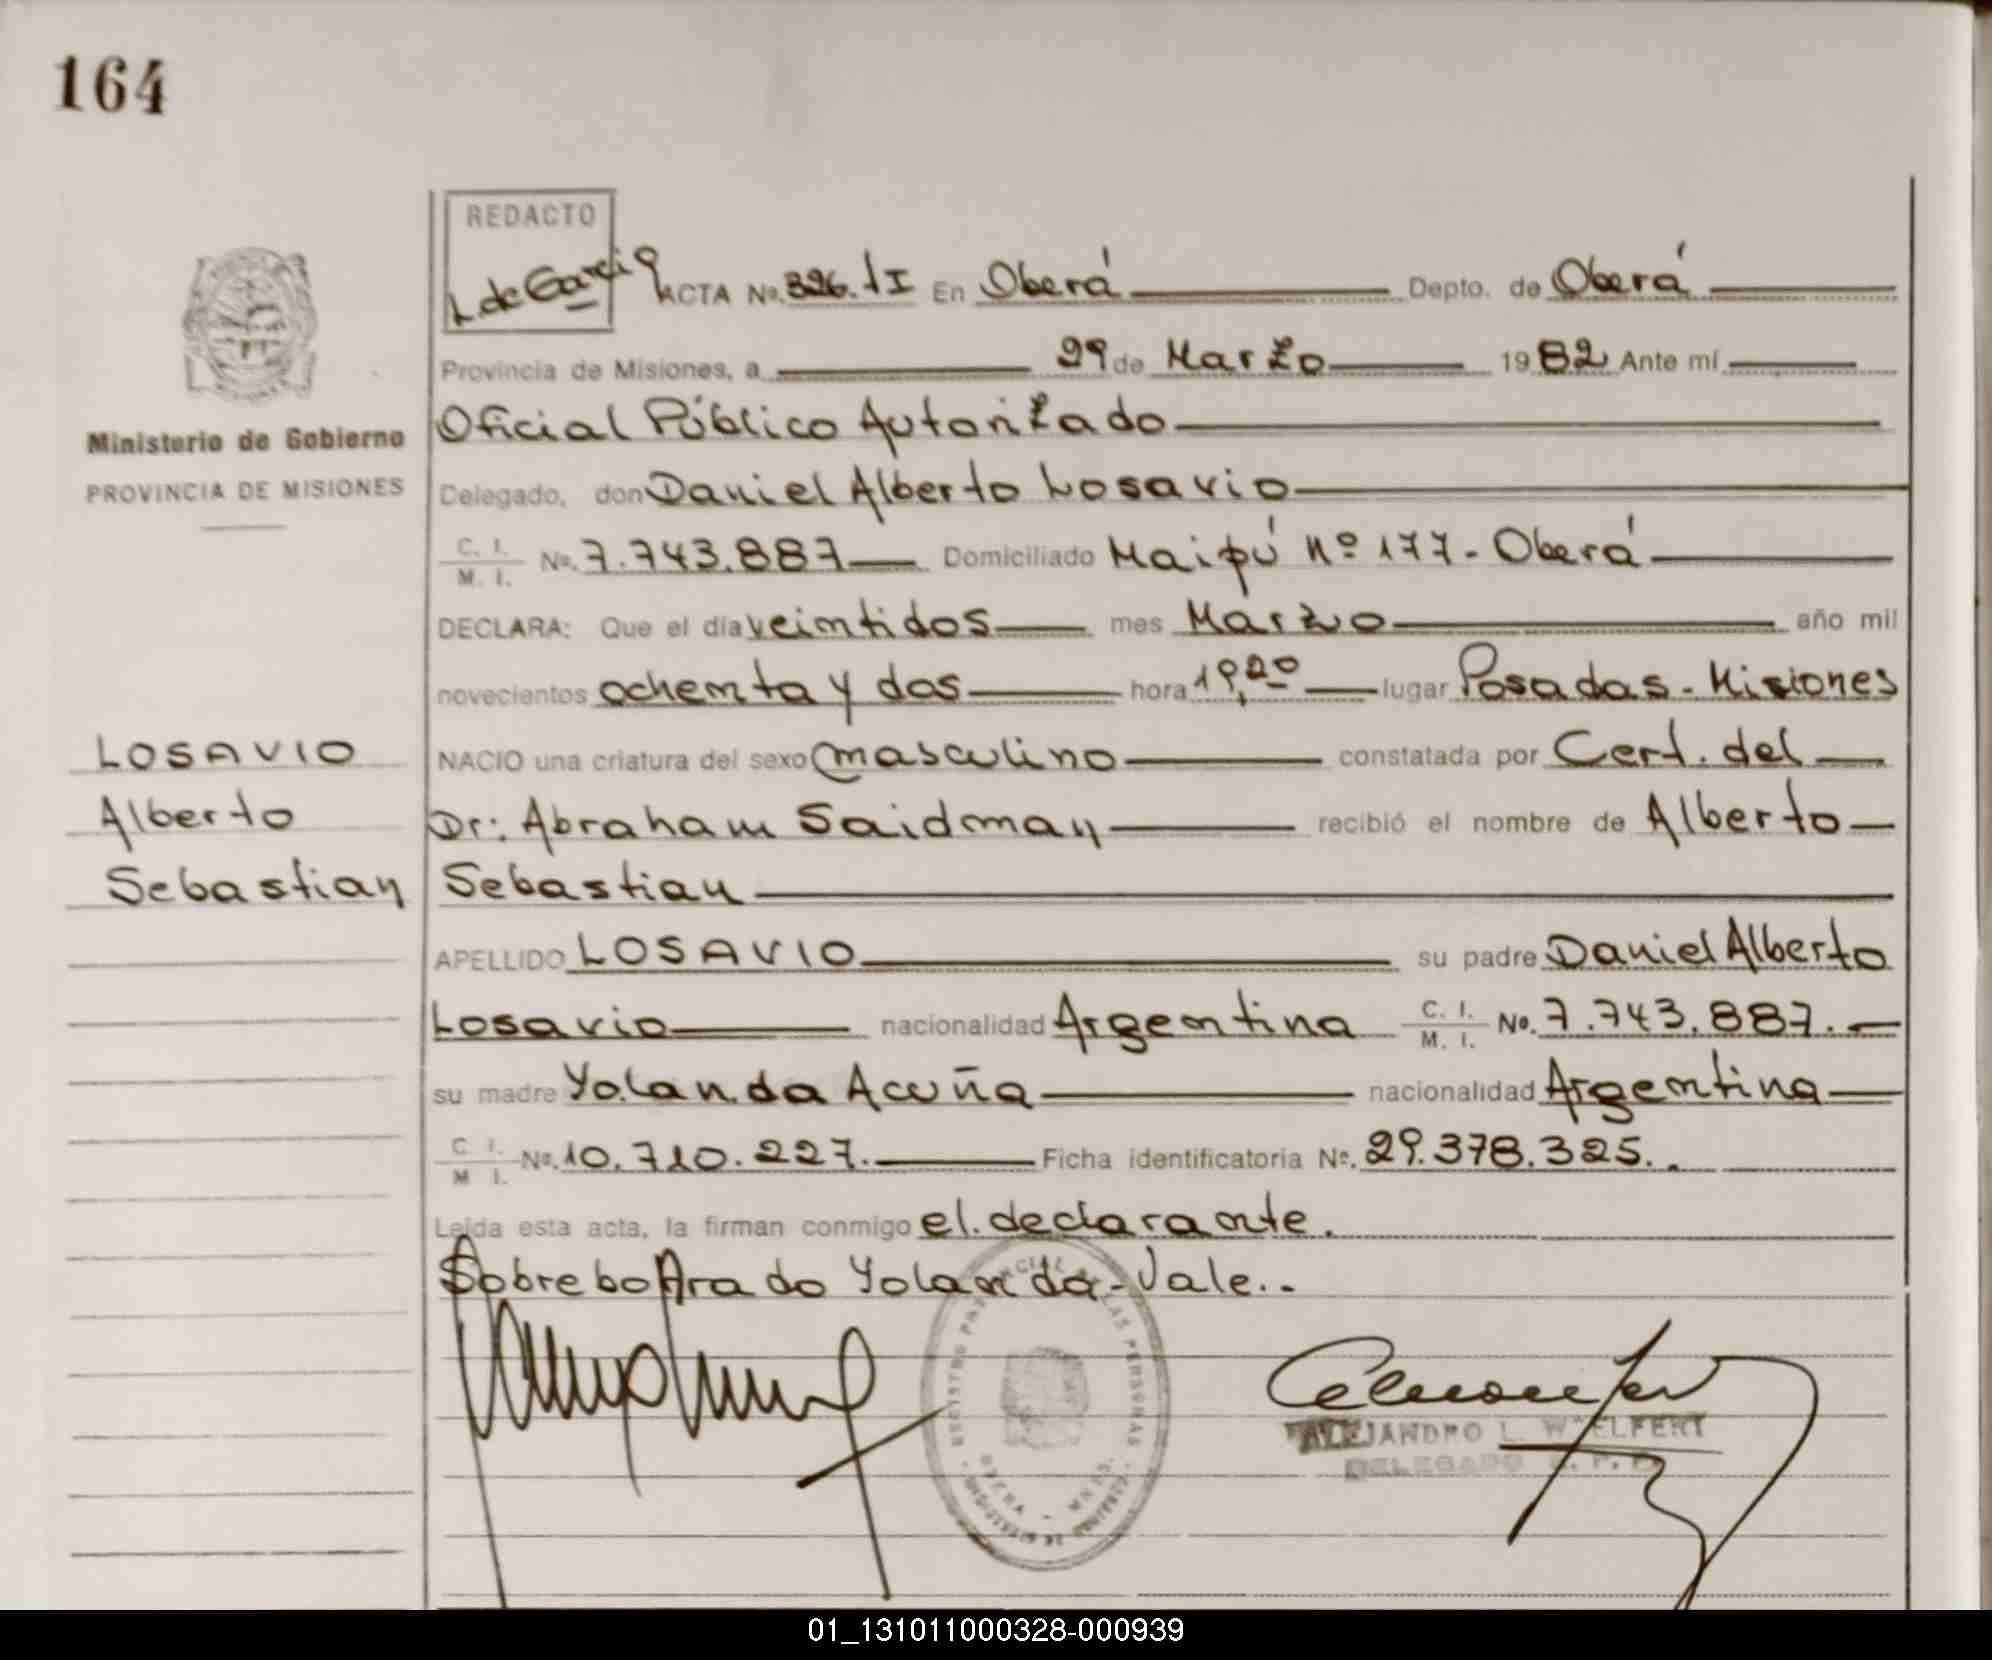 164
REDACTO
L. de Garcia
ACTA No. 326. tI En Oberá Depto. de Oberá
Provincia de Misiones, a 29 de Marzo 1982 Ante mí
Oficial Público Autorizado
Ministerio de Gobierno
PROVINCIA DE MISIONES
Delegado, don Daniel Alberto Losavio
C. I.
M. I.
No. 7.743.887 Domiciliado Maipú Nº 177 - Oberá
DECLARA: Que el día veintidos mes Marzo año mil
novecientos ochenta y dos hora 19,20 lugar Posadas - Misiones
LOSAVIO
Alberto
Sebastian
NACIO una criatura del sexo masculino constatada por Cert. del
Dr: Abraham Saidman recibió el nombre de Alberto
Sebastian
APELLIDO LOSAVIO su padre Daniel Alberto
Losavio nacionalidad Argentina C. I. M. I. No. 7.743.887.
su madre Yolanda Acuña nacionalidad Argentina
C. I. M. I. No. 10.710.227. Ficha identificatoria No. 29.378.325.
Leída esta acta, la firman conmigo el declarante.
Sobreborrado Yolanda - Vale..
REGISTRO PROVINCIAL DE LAS PERSONAS
OBERA - MNES.
ALEJANDRO L. W
DELEGADO
01_131011000328-000939